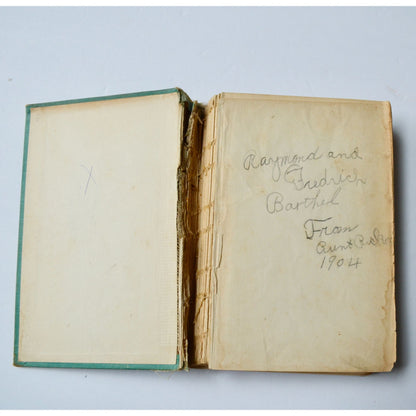 X
Raymond and
Fredrich
Barthel
From
Aunt
1904